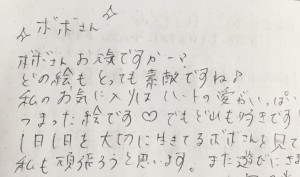 ☆ボボさん☆
ボボさんお元気ですかー?
どの絵もとっても素敵ですね♪
私のお気に入りはハートの愛がいっぱい
つまった絵です♡でもどれも好きです
1日1日を大切に生きてるボボさんを見て
私も頑張ろうと思います。また遊びにき